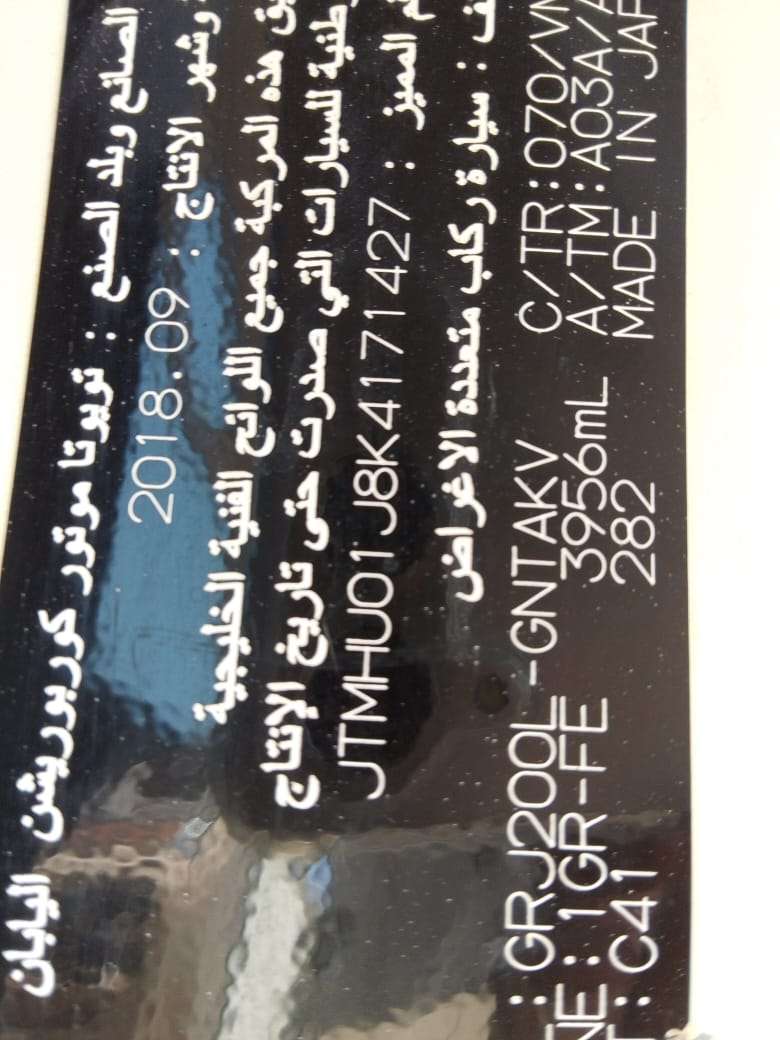 الصانع وبلد الصنع : تويوتا موتور كوربوريشن اليابان
وشهر الانتاج : 2018.09
هذه المركبة جميع اللوائح الفنية الخليجية
للسيارات التي صدرت حتى تاريخ الإنتاج
المميز : JTMHU01J8K4171427
: سيارة ركاب متعددة الاغراض
: GRJ200L-GNTAKV C/TR:070/
: 1GR-FE 3956mL A/TM:A03A/
: C41 282 MADE IN